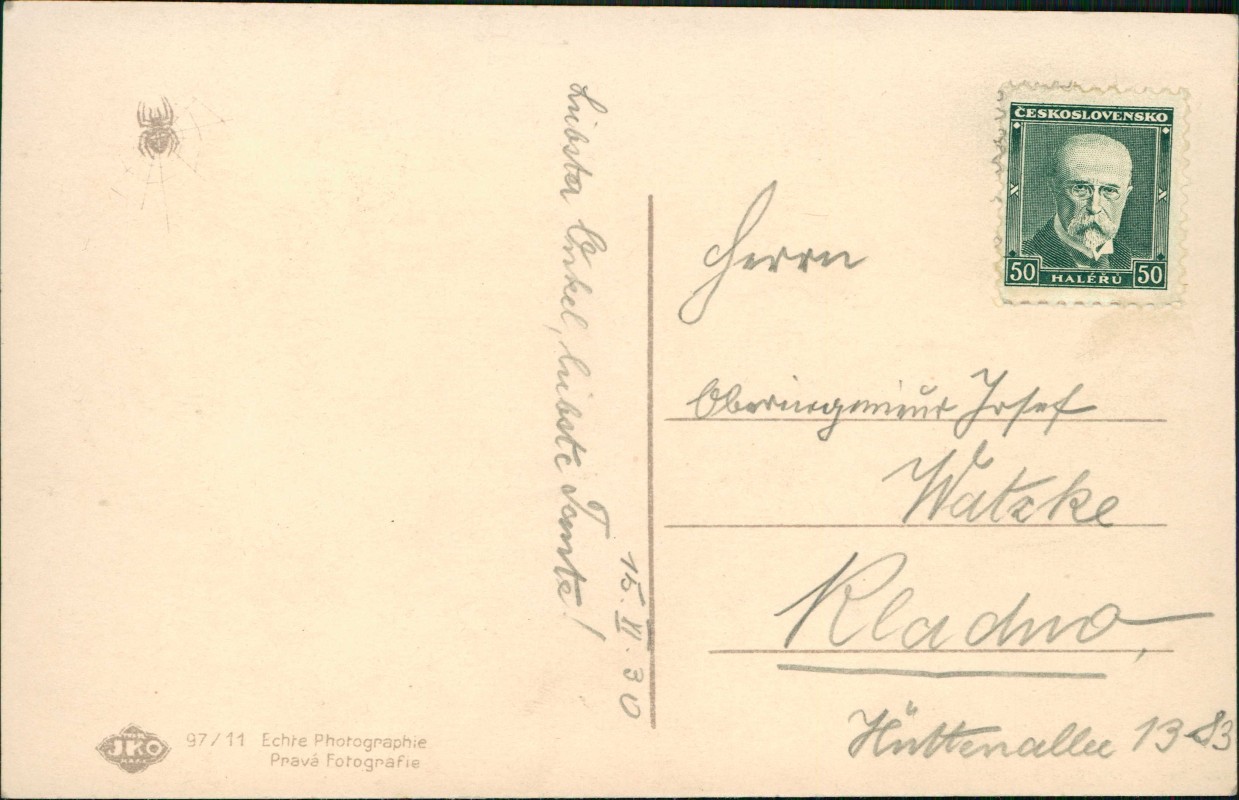 Liebster Onkel, liebste Tante!
15. VI. 30
ČESKOSLOVENSKO
50 HALÉŘŮ 50
Herrn
Oberingenieur Josef
Watzke
Kladno,
Hüttenallee 1383
JKO
97/11 Echte Photographie
Pravá Fotografie